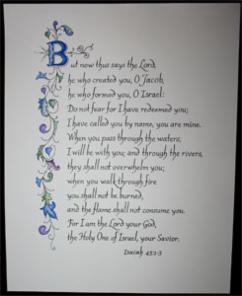 But now thus says the Lord,
he who created you, O Jacob,
he who formed you, O Israel:
Do not fear for I have redeemed you;
I have called you by name, you are mine.
When you pass through the waters,
I will be with you; and through the rivers,
they shall not overwhelm you;
when you walk through fire
you shall not be burned,
and the flame shall not consume you.
For I am the Lord your God,
the Holy One of Israel, your Savior.
Isaiah 43:1-3